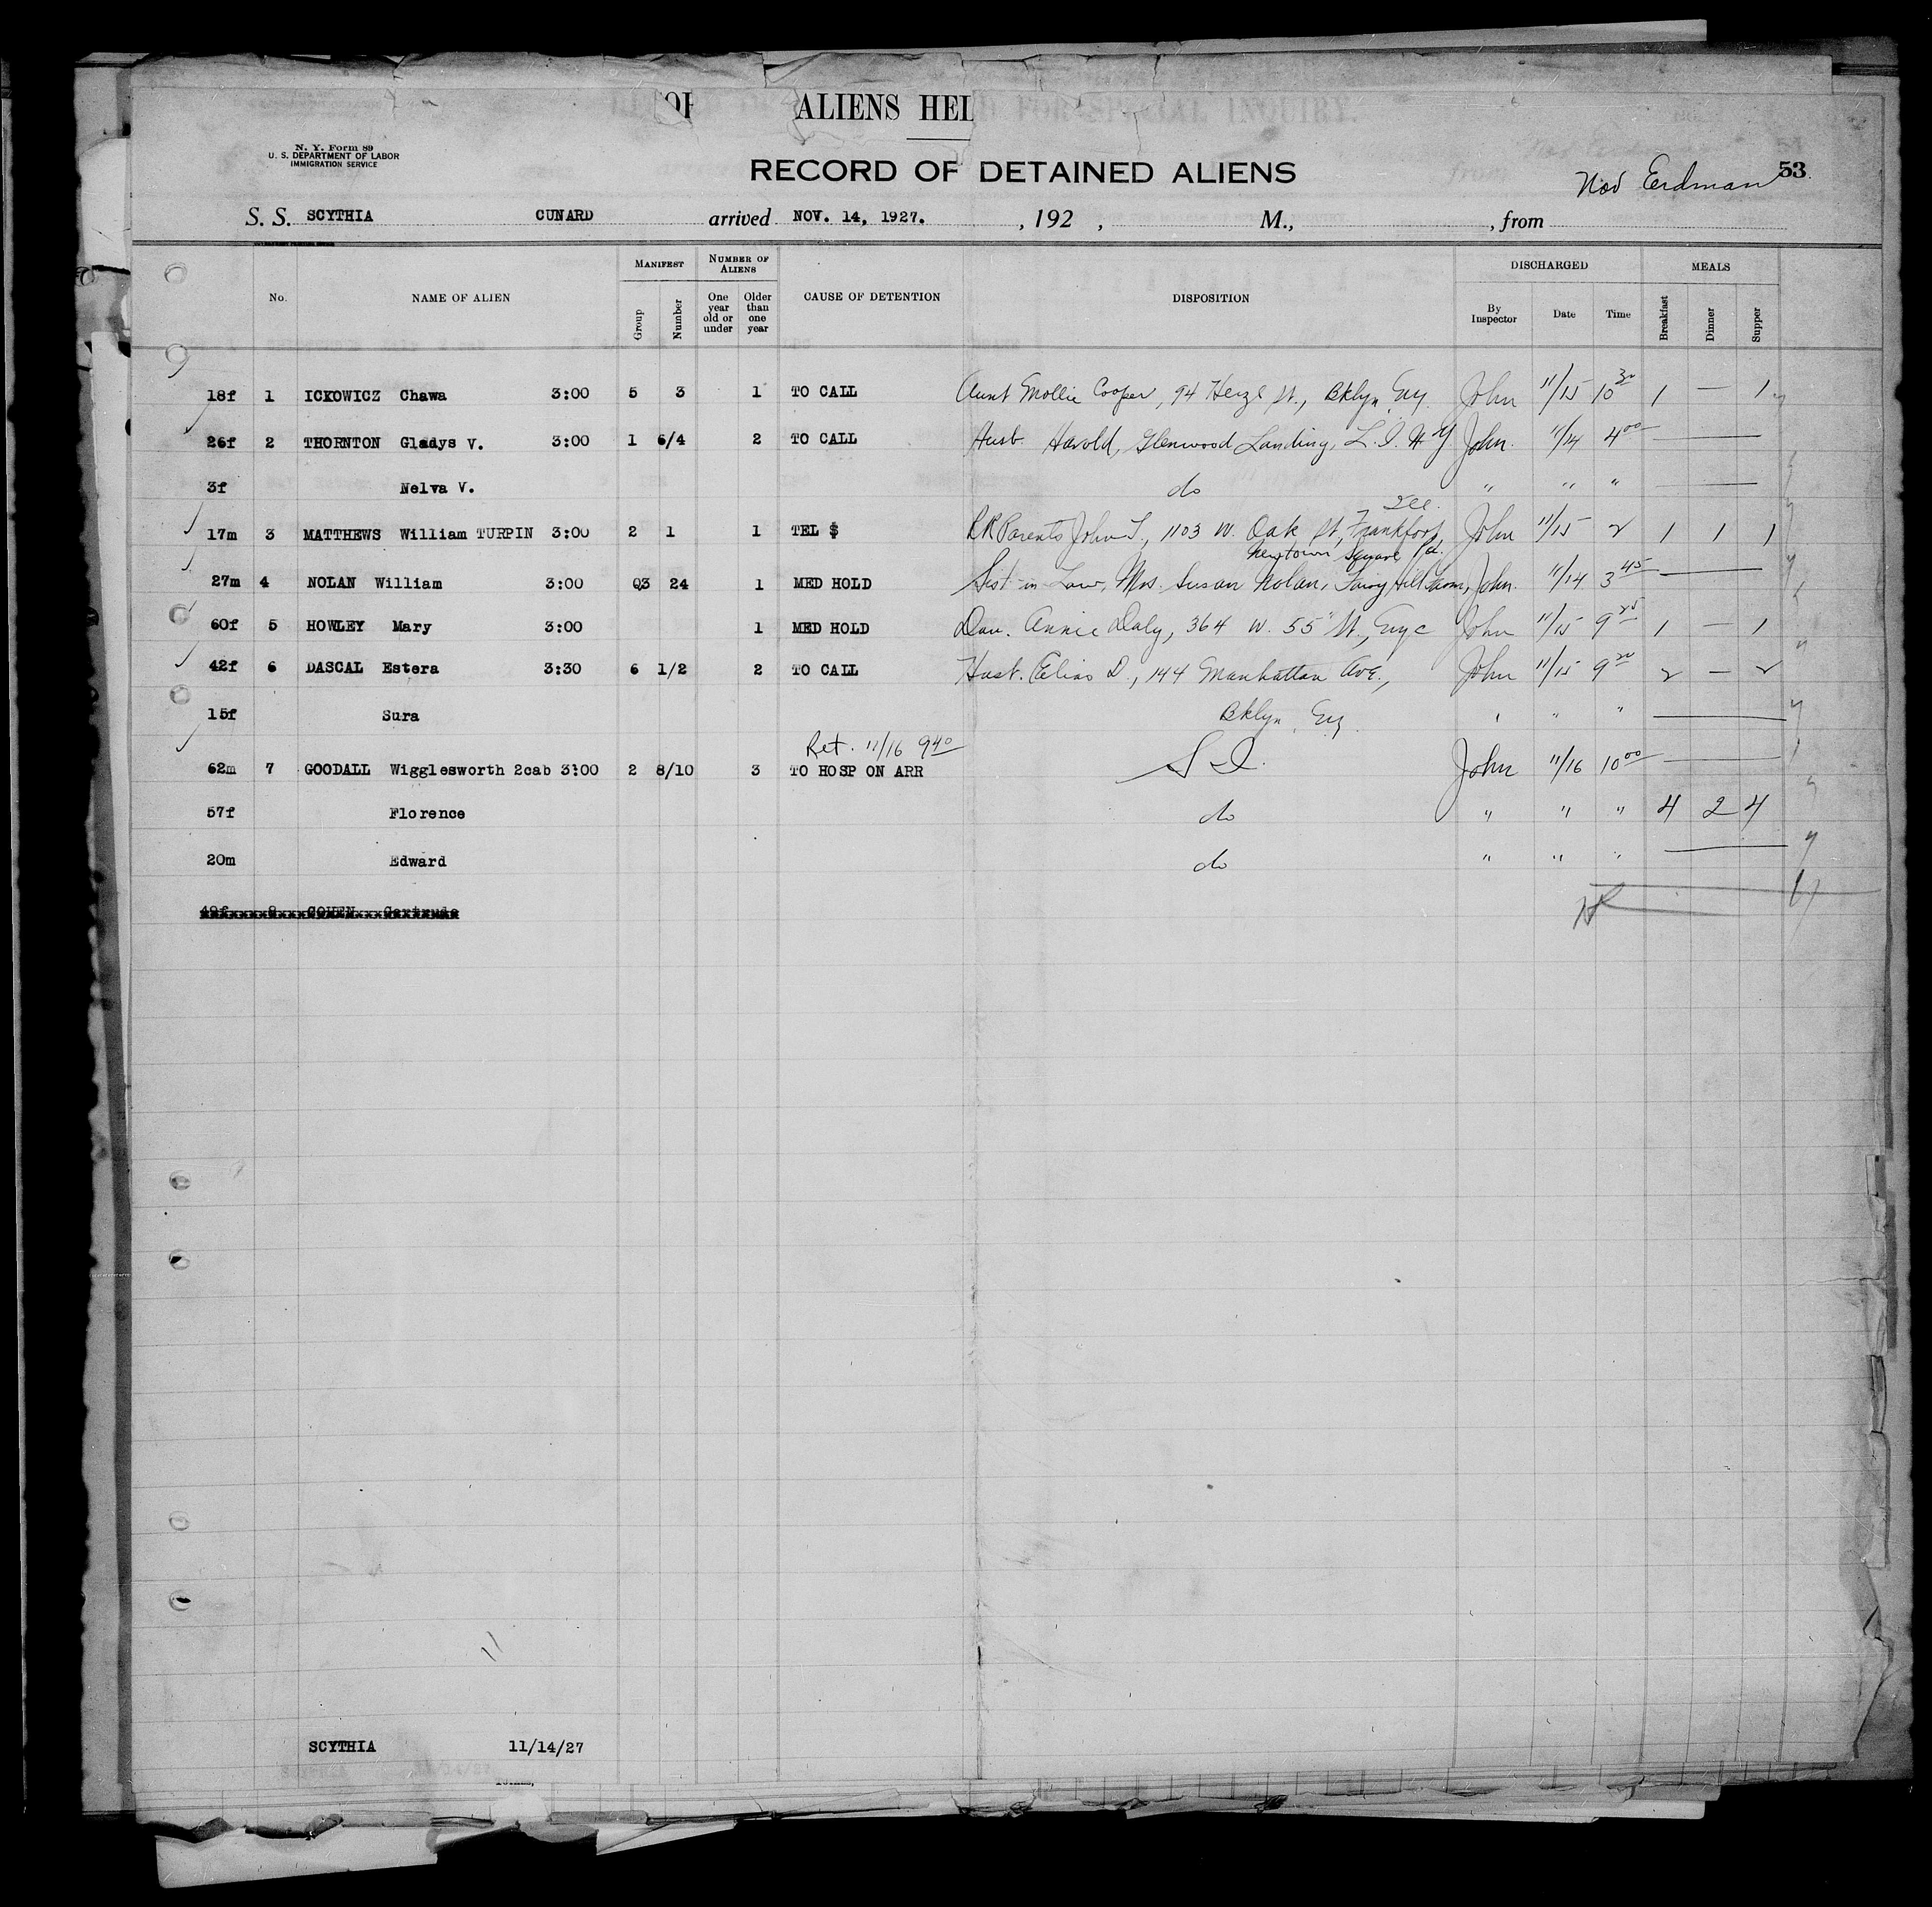 ALIENS HEL
N. Y. Form 89
U. S. DEPARTMENT OF LABOR
IMMIGRATION SERVICE
RECORD OF DETAINED ALIENS
Nov Erdman 53
S. S. SCYTHIA CUNARD arrived NOV. 14, 1927. , 192 , M., , from
No. NAME OF ALIEN MANIFEST Group Number NUMBER OF ALIENS One year old or under Older than one year CAUSE OF DETENTION DISPOSITION DISCHARGED By Inspector Date Time MEALS Breakfast Dinner Supper
18f 1 ICKOWICZ Chawa 3:00 5 3 1 TO CALL Aunt Mollie Cooper, 94 Herzl St., Bklyn, Ny. John 11/15 10 30 1 — 1
26f 2 THORNTON Gladys V. 3:00 1 6/4 2 TO CALL Husb Harold, Glenwood Landing, L. I. N Y John. 11/14 4 00
3f Nelva V. do " " "
Ill.
17m 3 MATTHEWS William TURPIN 3:00 2 1 1 TEL $ RR Parents John T., 1103 W. Oak St, Frankfort, John 11/15 2 1 1 1
Newtown Square Pa.
27m 4 NOLAN William 3:00 Q3 24 1 MED HOLD Sist in Law, Mrs. Susan Nolan, Fairy Hill Farm, John. 11/14 3 45
60f 5 HOWLEY Mary 3:00 1 MED HOLD Dau. Annie Daly, 364 W. 55" St., Nyc John 11/15 9 25 1 — 1
42f 6 DASCAL Estera 3:30 6 1/2 2 TO CALL Husb. Elias D., 144 Manhattan Ave., John 11/15 9 20 2 — 2
15f Sura Bklyn, Ny " " "
Ret. 11/16 9 40
62m 7 GOODALL Wigglesworth 2cab 3:00 2 8/10 3 TO HOSP ON ARR S I. John 11/16 10 00
57f Florence do " " " 4 2 4
20m Edward do " " "
49f 8 COHEN Gertrude
11
SCYTHIA 11/14/27